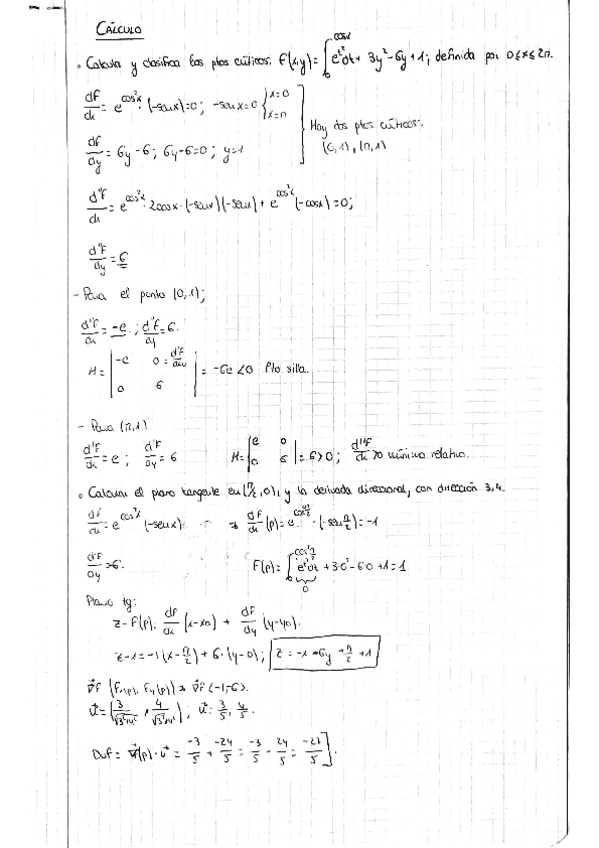 CÁLCULO
• Calcula y clasifica los ptos críticos. F(x,y) = ∫₀^cosx e^t² dt + 3y² - 6y + 1; definida por 0≤x≤2π.
df/dx = e^cos²x · (-senx) = 0; -senx = 0 { x=0 x=π
Hay dos ptos críticos:
(0,1), (π,1)
df/dy = 6y - 6; 6y - 6 = 0; y = 1
d''F/dx = e^cos²x · 2cosx · (-senx)(-senx) + e^cos²x (-cosx) = 0;
d''F/dy = 6
- Para el punto (0,1);
d''F/dx = -e; d''F/dy = 6.
H = | -e 0 = d''F/dxy
0 6 | = -6e < 0 Pto silla.
- Para (π,1)
d''F/dx = e; d''F/dy = 6 H = | e 0
0 6 | = 6 > 0; d''F/dx > 0 mínimo relativo.
• Calcular el plano tangente en (π/2, 0), y la derivada direccional, con dirección 3,4.
df/dx = e^cos²x (-senx) ⇒ dF/dx (p) = e^cos²π/2 · (-sen π/2) = -1
dF/dy = 6. F(p) = ∫₀^cos π/2 e^t² dt + 3·0² - 6·0 + 1 = 1
0
Plano tg:
z - F(p) = dF/dx (x-x0) + dF/dy (y-y0).
z - 1 = -1 (x - π/2) + 6·(y-0); z = -x + 6y + π/2 + 1
∇F (Fx(p), Fy(p)) ⇒ ∇F (-1, -6).
u = (3/√3²+4², 4/√3²+4²); u: 3/5, 4/5.
Duf = ∇f(p) · u = -3/5 + -24/5 = -3/5 - 24/5 = -27/5.